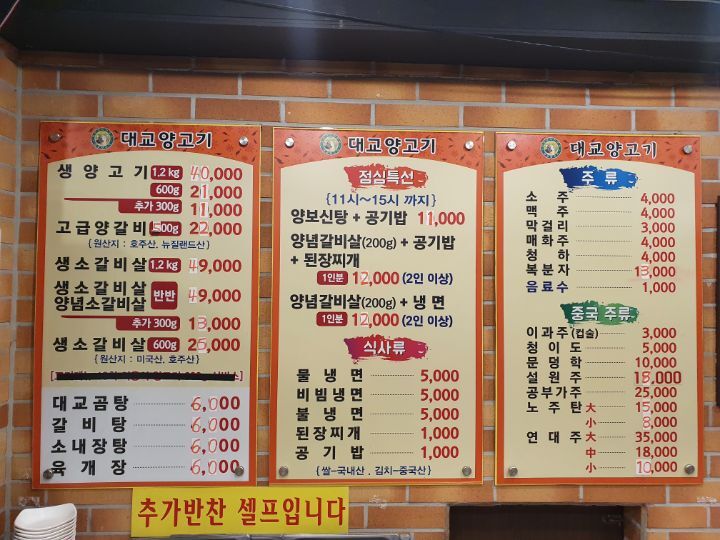 대교양고기
생양고기 1,2 kg 40,000
600g 21,000
추가 300g 11,000
고급양갈비 22,000
{원산지 : 호주산, 뉴질랜드산}
생소갈비살 1,2 kg 49,000
생소갈비살
양념소갈비살 반반 49,000
추가 300g 13,000
생소갈비살 600g 25,000
{원산지 : 미국산, 호주산}
대교곰탕 6,000
갈비탕 6,000
소내장탕 6,000
육개장 6,000
대교양고기
점심특선
{11시~15시 까지}
양보신탕 + 공기밥 11,000
양념갈비살(200g) + 공기밥
+ 된장찌개
1인분 12,000 (2인 이상)
양념갈비살(200g) + 냉면
1인분 12,000 (2인 이상)
식사류
물냉면 5,000
비빔냉면 5,000
불냉면 5,000
된장찌개 1,000
공기밥 1,000
{쌀-국내산, 김치-중국산}
대교양고기
주류
소주 4,000
맥주 4,000
막걸리 3,000
매화주 4,000
청하 4,000
복분자 13,000
음료수 1,000
중국 주류
이과주(컵술) 3,000
청이도 5,000
문덩학 10,000
설원주 18,000
공부가주 25,000
노주탄 大 15,000
小 8,000
연대주 大 35,000
中 18,000
小 10,000
추가반찬 셀프입니다